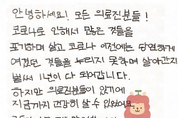 안녕하세요! 모든 의료진분들!
코로나로 인해서 많은 것들을
포기하며 살고 코로나 이전에는 당연하게
여겼던 것들을 누리지 못하며 살아간지
벌써 1년이 다 되어갑니다.
하지만 의료진분들이 있기에
지금까지 건강히 살 수 있었어요